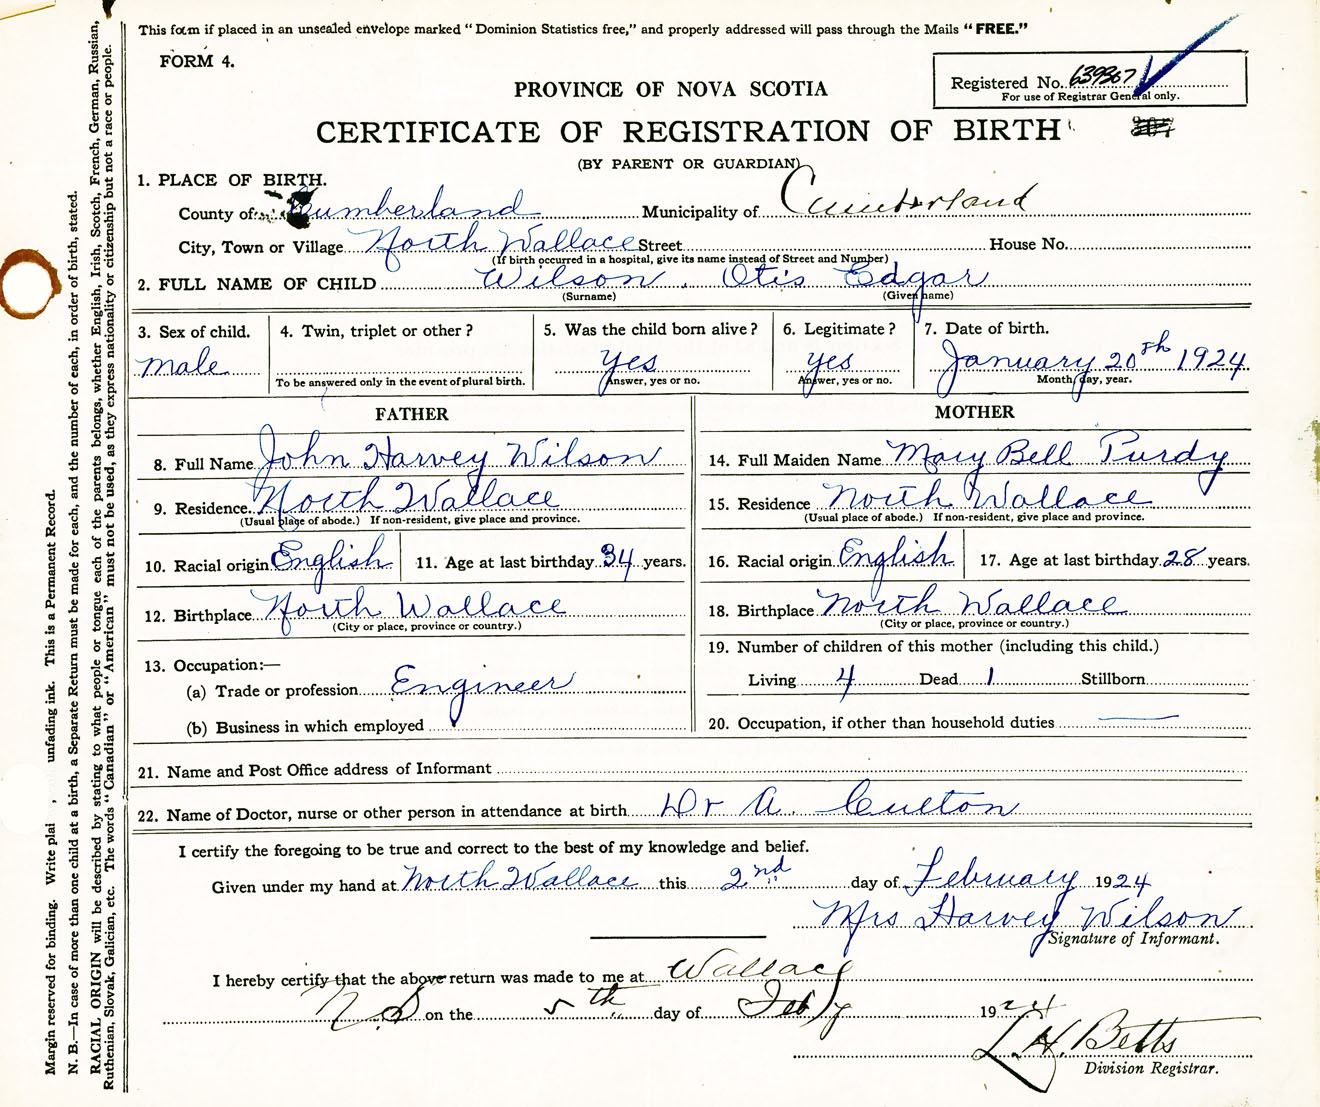 This form if placed in an unsealed envelope marked "Dominion Statistics free," and properly addressed will pass through the Mails "FREE."
FORM 4.
Registered No. 639367
For use of Registrar General only.
PROVINCE OF NOVA SCOTIA
CERTIFICATE OF REGISTRATION OF BIRTH
(BY PARENT OR GUARDIAN)
1. PLACE OF BIRTH.
County of Cumberland Municipality of Cumberland
City, Town or Village North Wallace Street House No.
(If birth occurred in a hospital, give its name instead of Street and Number)
2. FULL NAME OF CHILD Wilson, Otis Edgar
(Surname) (Given name)
3. Sex of child. 4. Twin, triplet or other? 5. Was the child born alive? 6. Legitimate? 7. Date of birth.
male yes yes January 20th 1924
To be answered only in the event of plural birth. Answer, yes or no. Answer, yes or no. Month, day, year.
FATHER
8. Full Name John Harvey Wilson
9. Residence. North Wallace
(Usual place of abode.) If non-resident, give place and province.
10. Racial origin English 11. Age at last birthday 34 years.
12. Birthplace North Wallace
(City or place, province or country.)
13. Occupation:—
(a) Trade or profession Engineer
(b) Business in which employed
MOTHER
14. Full Maiden Name Mary Bell Purdy
15. Residence North Wallace
(Usual place of abode.) If non-resident, give place and province.
16. Racial origin English 17. Age at last birthday 28 years.
18. Birthplace North Wallace
(City or place, province or country.)
19. Number of children of this mother (including this child.)
Living 4 Dead 1 Stillborn
20. Occupation, if other than household duties
21. Name and Post Office address of Informant
22. Name of Doctor, nurse or other person in attendance at birth Dr A.
I certify the foregoing to be true and correct to the best of my knowledge and belief.
Given under my hand at North Wallace this 2nd day of February 1924
Mrs Harvey Wilson
Signature of Informant.
I hereby certify that the above return was made to me at Wallace
N.S on the 5th day of Feby 1924
L. H. Betts
Division Registrar.
Margin reserved for binding. Write plai unfading ink. This is a Permanent Record.
N. B.—In case of more than one child at a birth, a Separate Return must be made for each, and the number of each, in order of birth, stated.
RACIAL ORIGIN will be described by stating to what people or tongue each of the parents belongs, whether English, Irish, Scotch, French, German, Russian,
Ruthenian, Slovak, Galician, etc. The words "Canadian" or "American" must not be used, as they express nationality or citizenship but not a race or people.